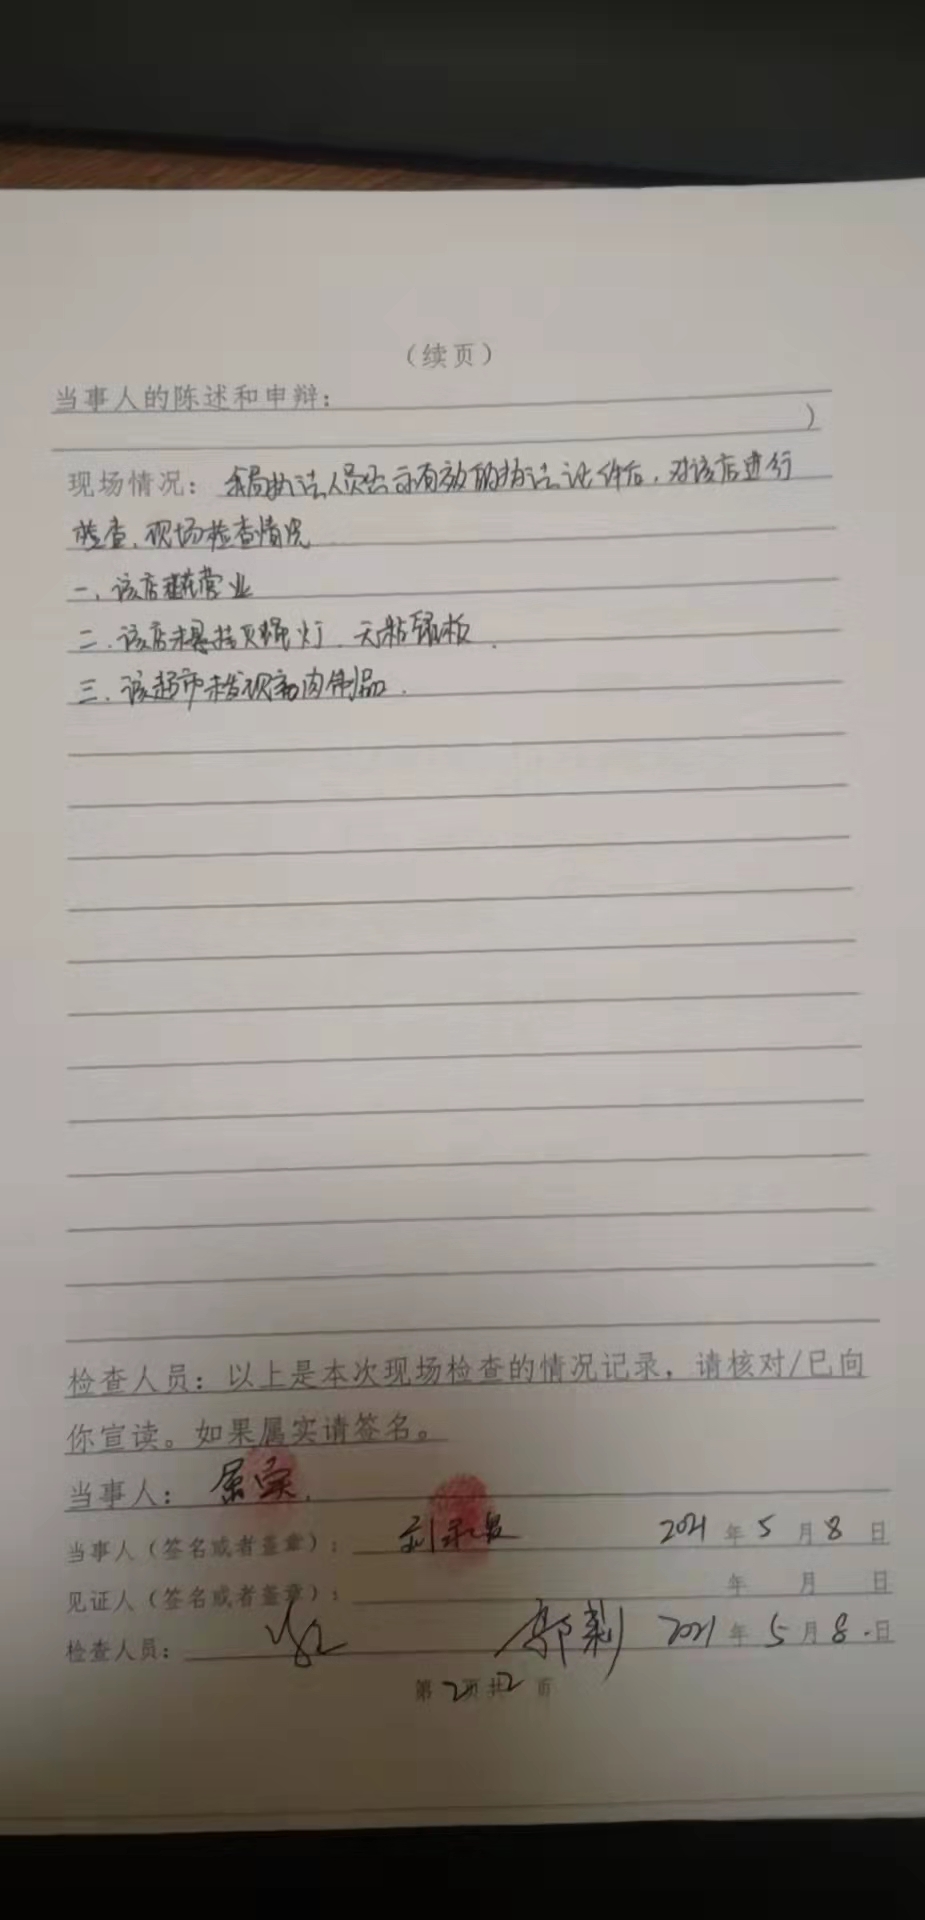 （续页）
当事人的陈述和申辩：
）
现场情况：我局执法人员出示有效的执法证件后，对该店进行
检查，现场检查情况
一、该店在营业
二、该店未悬挂灭蝇灯、无粘鼠板．
三、该超市未发现肉制品．
检查人员：以上是本次现场检查的情况记录，请核对/已向
你宣读。如果属实请签名。
当事人：属实．
当事人（签名或者盖章）：刘 2021年5月8日
见证人（签名或者盖章）： 年 月 日
检查人员： 2021年5月8日
第2页共2页